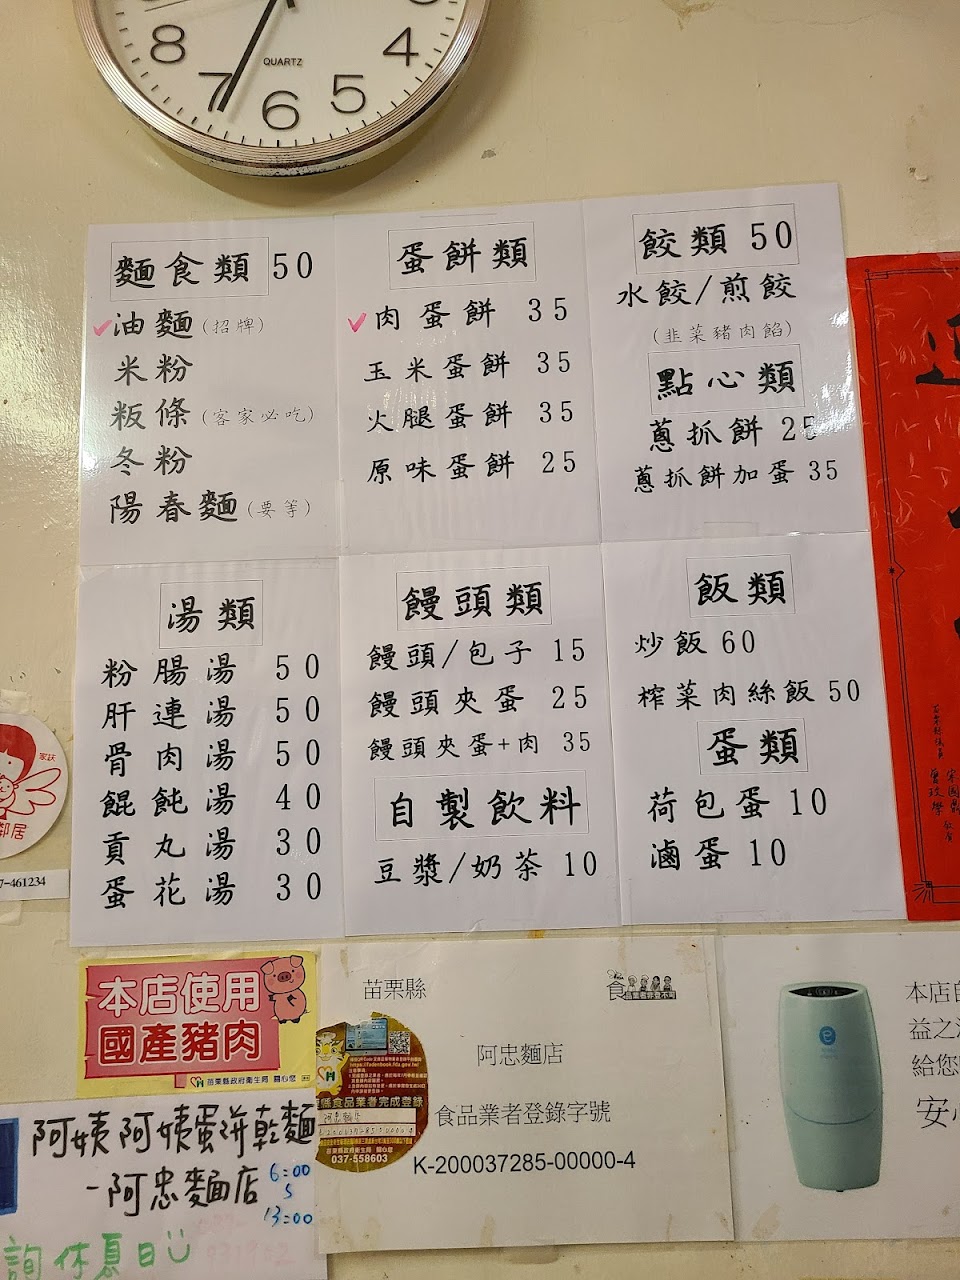 8
7
6
5
4
QUARTZ
麵食類 50
油麵(招牌)
米粉
粄條(客家必吃)
冬粉
陽春麵(要等)
蛋餅類
肉蛋餅 35
玉米蛋餅 35
火腿蛋餅 35
原味蛋餅 25
餃類 50
水餃/煎餃
(韭菜豬肉餡)
點心類
蔥抓餅 25
蔥抓餅加蛋 35
湯類
粉腸湯 50
肝連湯 50
骨肉湯 50
餛飩湯 40
貢丸湯 30
蛋花湯 30
饅頭類
饅頭/包子 15
饅頭夾蛋 25
饅頭夾蛋+肉 35
自製飲料
豆漿/奶茶 10
飯類
炒飯 60
榨菜肉絲飯 50
蛋類
荷包蛋 10
滷蛋 10
鄰居
7-461234
本店使用
國產豬肉
苗栗縣政府衛生局 關心您
阿姨阿姨蛋餅乾麵
-阿忠麵店
6:00
13:00
詢休息日
苗栗縣
阿忠麵店
食品業者登錄字號
K-200037285-00000-4
食品業者完成登錄
苗栗縣政府衛生局 關心您
037-558603
本店
益之
給您
安心